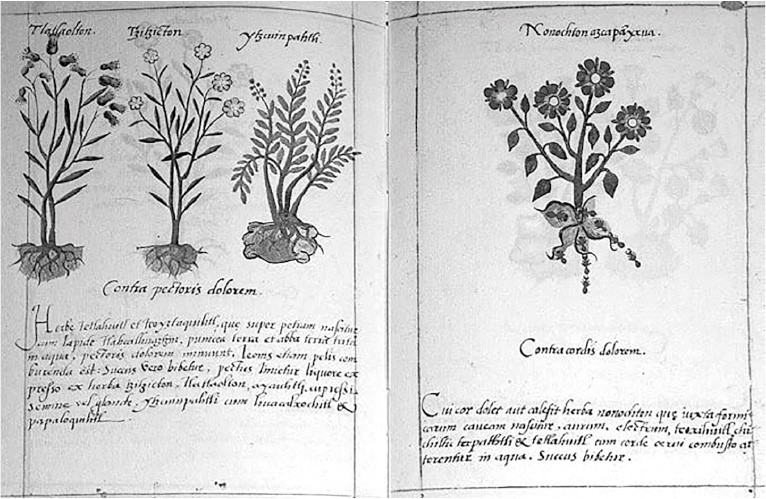 Tlatlaolton. Tzitzicton. Ytzcuinpahtli.
Contra pectoris dolorem.
Herbę Tetlahuitl et Teoyztaquilitl, quę super petram nascitur
cum lapide Tlahcalhuatzin, punicea terra et alba terra trita
in aqua, pectoris dolorem minuunt. Leonis etiam pelis com
burenda est: Succus vero bibetur, pectus linietur liquore ex
presso ex herba tzitzicton, Tlatlaolton, ayauhtli, cupressi
semine vel glande, Ytzcuinpahtli cum huacalxochitl &
papaloquilitl
Nonochton azcapanyxua.
Contra cordis dolorem.
Cui cor dolet aut calefit herba nonochton quę iuxta formi
carum caveam nascitur, aurum, electrum, teoxihuitl, chi
chiltic tapachtli & tetlahuitl cum corde cervi combusto at
terentur in aqua. Succus bibetur.